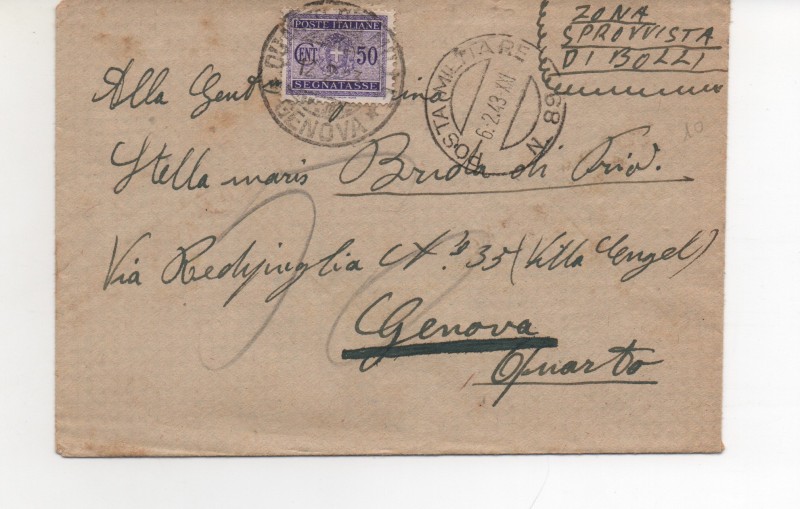 ZONA
SPROVVISTA
DI BOLLI
POSTE ITALIANE
CENT 50
SEGNATASSE
GENOVA
POSTA MILITARE 68 N
6.2.43 XXI
10
Alla Gent
Stella maris Briola di Priò.
Via Redipuglia N. 35 (Villa Engel)
Genova
Quarto
50